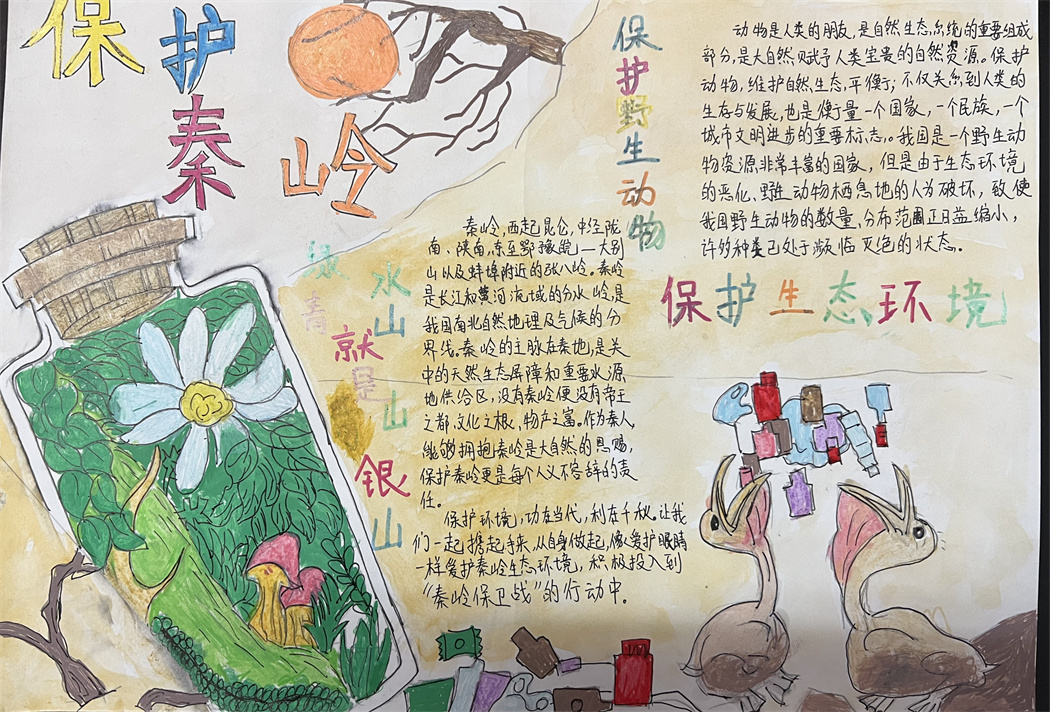 保护
秦
山岭
保护野生动物
动物是人类的朋友,是自然生态系统的重要组成
部分,是大自然赋予人类宝贵的自然资源。保护
动物,维护自然生态平衡,不仅关系到人类的
生存与发展,也是衡量一个国家,一个民族,一个
城市文明进步的重要标志。我国是一个野生动
物资源非常丰富的国家,但是由于生态环境
的恶化、野生动物栖息地的人为破坏,致使
我国野生动物的数量、分布范围正日益缩小,
许多种类已处于濒临灭绝的状态。
保护生态环境
绿水
青山
就是
山
银
山
秦岭,西起昆仑,中经陇
南、陕南,东至鄂豫皖—大别
山以及蚌埠附近的张八岭。秦岭
是长江和黄河流域的分水岭,是
我国南北自然地理及气候的分
界线。秦岭的主脉在秦地,是关
中的天然生态屏障和重要水源
地供给区,没有秦岭便没有帝王
之都、文化之根、物产之富。作为秦人,
能够拥抱秦岭是大自然的恩赐,
保护秦岭更是每个人义不容辞的责
任。
保护环境,功在当代,利在千秋。让我
们一起携起手来,从自身做起,像爱护眼睛
一样爱护秦岭生态环境,积极投入到
“秦岭保卫战”的行动中。